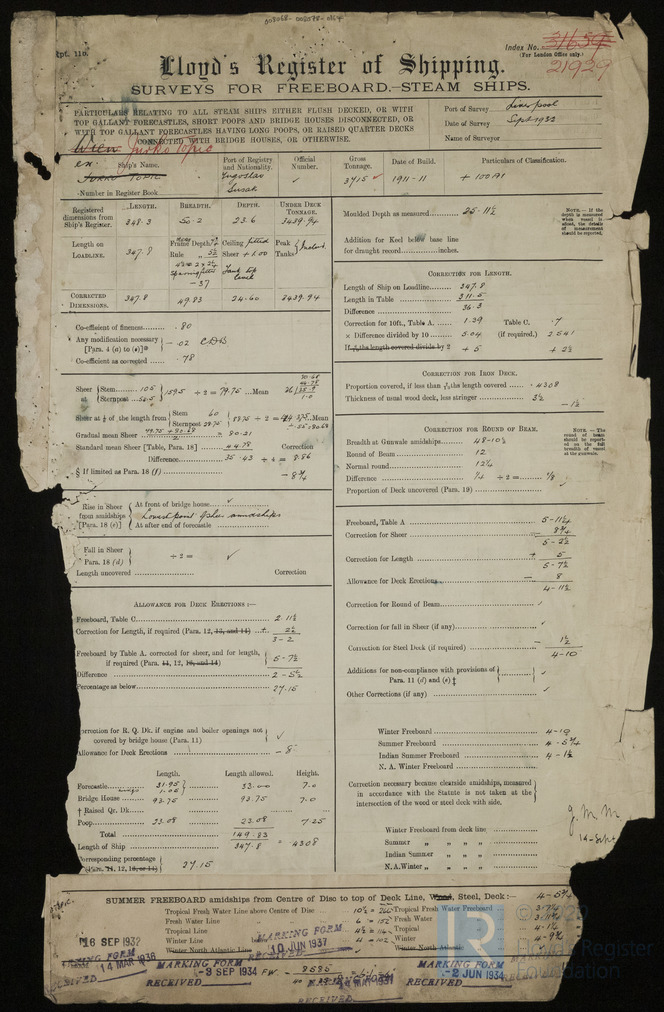 008068 - 008078 - 0167
Rpt. 11b.
Index No. 31659
(For London Office only.)
21929
Lloyd's Register of Shipping.
SURVEYS FOR FREEBOARD.—STEAM SHIPS.
PARTICULARS RELATING TO ALL STEAM SHIPS EITHER FLUSH DECKED, OR WITH
TOP GALLANT FORECASTLES, SHORT POOPS AND BRIDGE HOUSES DISCONNECTED, OR
WITH TOP GALLANT FORECASTLES HAVING LONG POOPS, OR RAISED QUARTER DECKS
CONNECTED WITH BRIDGE HOUSES, OR OTHERWISE.
Port of Survey Liverpool
Date of Survey Sept 1932
Name of Surveyor
Wien Jurko Topic
ex.
Ship's Name.
Port of Registry and Nationality.
Official Number.
Gross Tonnage.
Date of Build.
Particulars of Classification.
JURKO TOPIC
Yugoslav
Susak
3715
1911-11
+ 100 A1
Number in Register Book
Registered dimensions from Ship's Register.
LENGTH. BREADTH. DEPTH. UNDER DECK TONNAGE.
348.3 50.2 23.6 3439.94
Length on LOADLINE.
347.8
Frame Depth
Rule
Sparring fitted
- .37
Ceiling fitted
Sheer + 1.00
Tank top
Peak Tanks
CORRECTED DIMENSIONS.
347.8 49.83 24.60 3439.94
Moulded Depth as measured 25-11½
NOTE.—If the depth is measured when vessel is afloat, the details of measurement should be reported.
Addition for Keel below base line
for draught record inches.
CORRECTION FOR LENGTH.
Length of Ship on Loadline 347.8
Length in Table 311.5
Difference 36.3
Correction for 10ft., Table A. 1.39 Table C. .7
× Difference divided by 10 5.04 (if required.) 2.541
+ 5 + 2½
Co-efficient of fineness .80
Any modification necessary
[Para. 4 (a) to (e)] - .02 CDB
Co-efficient as corrected .78
CORRECTION FOR IRON DECK.
Proportion covered, if less than 7/10 ths length covered .4308
Thickness of usual wood deck, less stringer 3½
- 1½
Sheer at Stem 105 Sternpost 54.5 159.5 ÷ 2 = 79.75 Mean
Sheer at ⅛ of the length from Stem 60 Sternpost 28.75 88.75 ÷ 2 = 44.375 Mean
Gradual mean Sheer 80.21
Standard mean Sheer [Table, Para. 18] 44.78 Correction
Difference 35.43 ÷ 4 = 8.86
§ If limited as Para. 18 (f) - 8¾
CORRECTION FOR ROUND OF BEAM.
Breadth at Gunwale amidships 48-10½
Round of Beam 12
Normal round 12¼
Difference ¼ ÷ 2 = ⅛
Proportion of Deck uncovered (Para. 19)
NOTE.—The round of beam should be reported on the full breadth of vessel at the gunwale.
Rise in Sheer from amidships [Para. 18 (e)]
At front of bridge house
Lowest point of sheer amidships
At after end of forecastle
Fall in Sheer
Para. 18 (d) ÷ 2 =
Length uncovered Correction
Freeboard, Table A 5-11¼
Correction for Sheer 8¾
5-2½
Correction for Length + 5
5-7½
Allowance for Deck Erections - 8
4-11½
Correction for Round of Beam
Correction for fall in Sheer (if any)
Correction for Steel Deck (if required) - 1½
4-10
Additions for non-compliance with provisions of
Para. 11 (d) and (e) ‡
Other Corrections (if any)
ALLOWANCE FOR DECK ERECTIONS:—
Freeboard, Table C. 2 11½
Correction for Length, if required (Para. 12, 13, and 14) + 2½
3-2
Freeboard by Table A. corrected for sheer, and for length,
if required (Para. 11, 12, 13, and 14) 5-7½
Difference 2-5½
Percentage as below 27.15
Correction for R. Q. Dk. if engine and boiler openings not
covered by bridge house (Para. 11)
Allowance for Deck Erections - 8
Length. Length allowed. Height.
Forecastle 31.95 1.05 33.00 7.0
Bridge House 93.75 93.75 7.0
† Raised Qr. Dk.
Poop 23.08 23.08 7.25
Total 149.83
Length of Ship 347.8 = .4308
Corresponding percentage
(Para. 11, 12, 13, or 14) 27.15
Winter Freeboard 4-10
Summer Freeboard 4-5¾
Indian Summer Freeboard 4-1½
N. A. Winter Freeboard
Correction necessary because clearside amidships, measured
in accordance with the Statute is not taken at the
intersection of the wood or steel deck with side.
J.M.M.
14-Sept
Winter Freeboard from deck line
Summer „ „ „
Indian Summer „ „ „
N.A. Winter „ „ „
SUMMER FREEBOARD amidships from Centre of Disc to top of Deck Line, Wood, Steel, Deck:— 4-5¾
Tropical Fresh Water Line above Centre of Disc 10½ = Tropical Fresh Water Freeboard 3-7¼
Fresh Water Line 6 = 152 Fresh Water 3-11¾
Tropical Line 4½ = 114 Tropical 4-1¼
Winter Line 4 = 102 Winter 4-9¾
Winter North Atlantic Line Winter North Atlantic
16 SEP 1932
MARKING FORM
14 MAR 1938
RECEIVED
MARKING FORM
-3 SEP 1934
RECEIVED
MARKING FORM
10 JUN 1937
RECEIVED
FW. 8585
RECEIVED
MARKING FORM
-2 JUN 1934
RECEIVED
LR
Register
Foundation